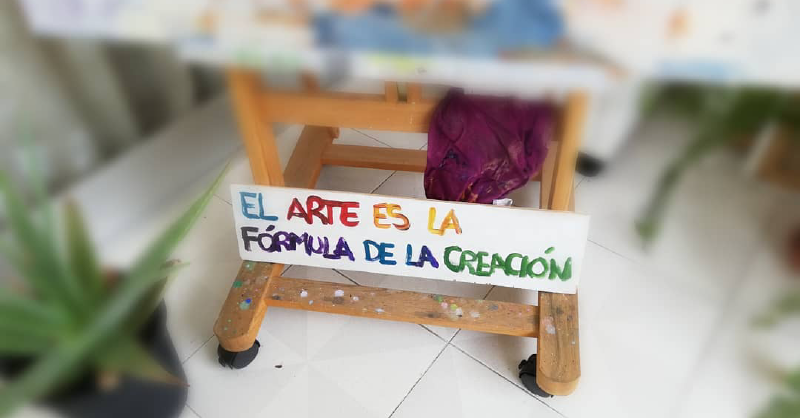 EL ARTE ES LA
FÓRMULA DE LA CREACIÓN